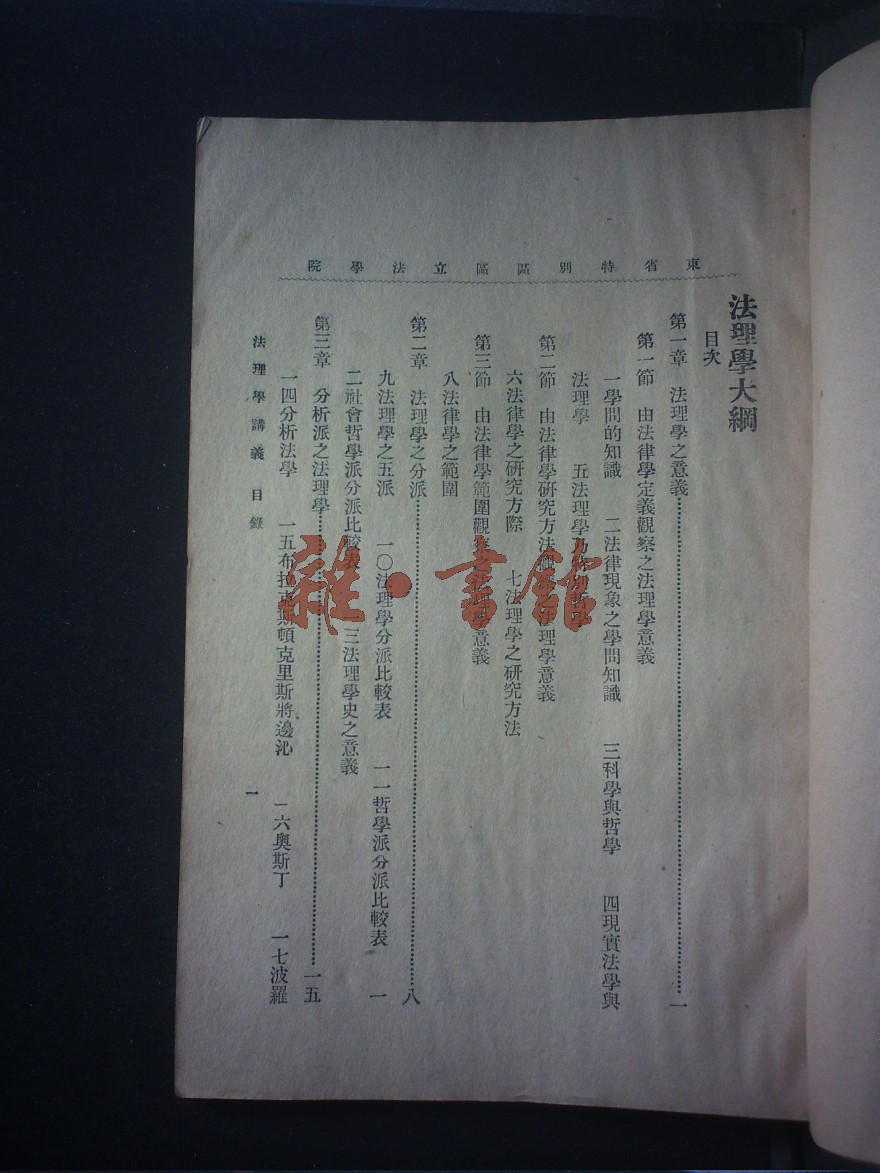 東省特別區區立法學院
法理學大綱
目次
第一章　法理學之意義……一
第一節　由法律學定義觀察之法理學意義
一學問的知識　二法律現象之學問知識　三科學與哲學　四現實法學與
法理學　五法理學乃特別哲學
第二節　由法律學研究方法觀察之法理學意義
六法律學之研究方際　七法理學之研究方法
第三節　由法律學範圍觀察之法理學意義
八法律學之範圍
第二章　法理學之分派……八
九法理學之五派　一〇法理學分派比較表　一一哲學派分派比較表　一
二社會哲學派分派比較表　一三法理學史之意義
第三章　分析派之法理學……一五
一四分析法學　一五布拉克斯頓克里斯將邊沁　一六奧斯丁　一七波羅
法理學講義　目錄
一
雜·書館